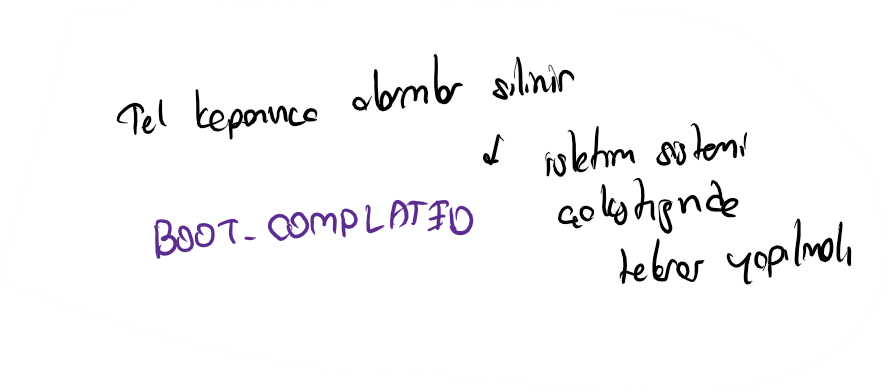 Tel kapanınca alarmlar silinir
↓ işletim sistemi
çalıştığında
tekrar yapılmalı
BOOT_COMPLATED